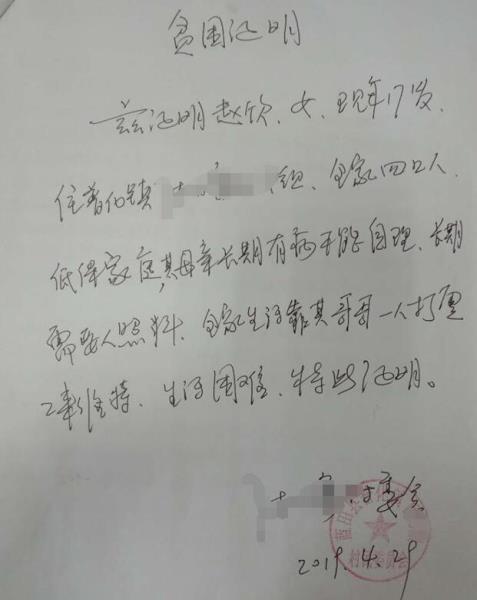 贫困证明
兹证明赵欣、女、现年17岁、
住普化镇 组、全家四口人、
低保家庭,其母亲长期有病不能自理、长期
需要人照料、全家生活靠其哥哥一人打零
工来维持、生活困难、特此证明。
村委会
蓝田县
村民委员会
2019.4.29